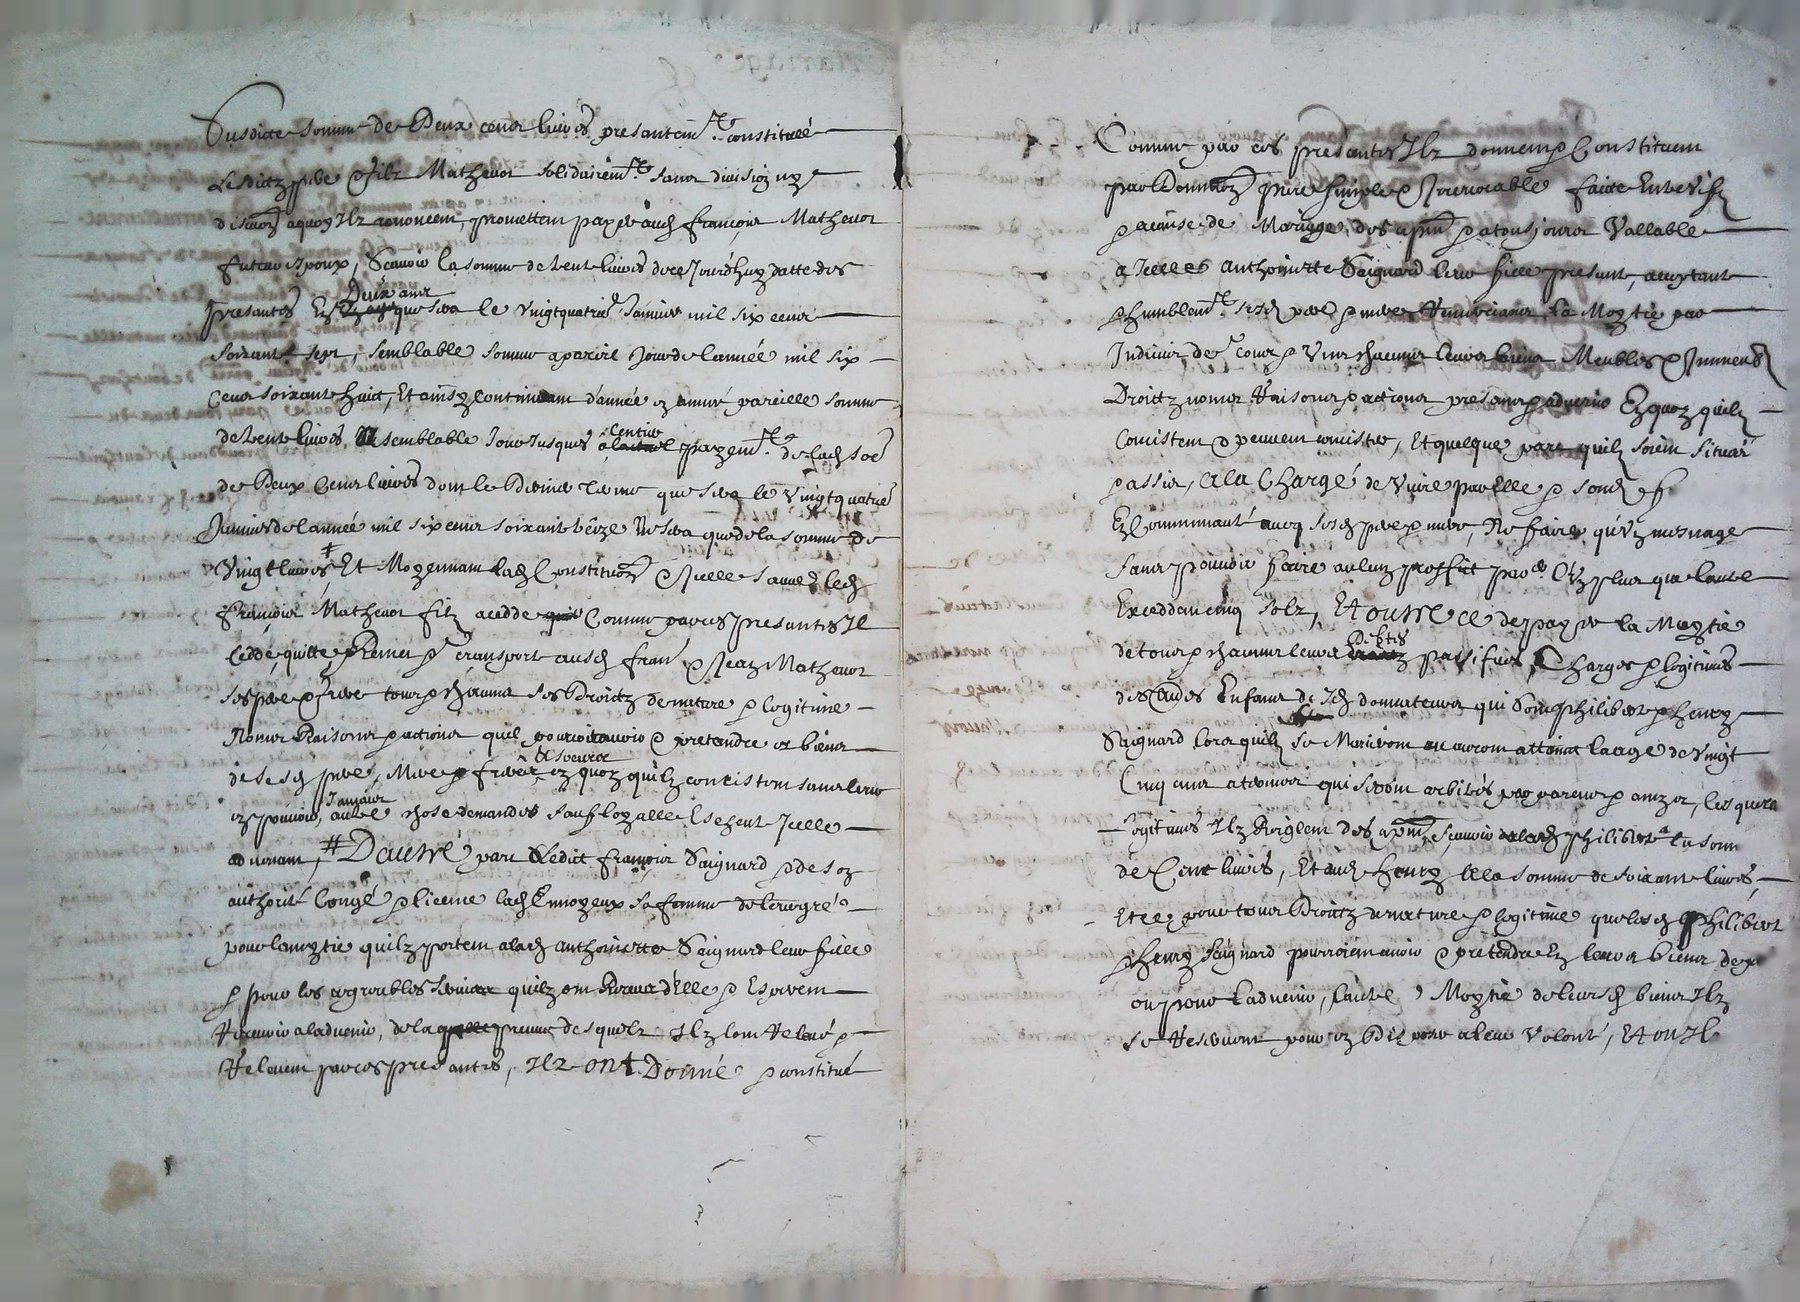 Susdicte somme de Deux cens livres presantem.t constituée
Lesdictz pere & filz Mathevot solidairem.t sans division ny
discution aquoy Ilz renoncent, promettent payer aud francois Mathevot
futeur espoux, Scavoir la somme de vente livres dece Jourdhuy datte des
presantes En Deux ans que sera le vingtquatrie. Janvier mil six cens
soixante sept, semblable somme a pareil Jour de lannée mil six
cens soixante huict, Et ainsy continuant dannée en année pareille somme
de livres, A semblable Jour Jusques a Lentier payem.t de lad. so.e
de Deux Cens livres dont le Dernier terme que sera le Vingtquatrie
Janvier de lannée mil six cens soixante treize Ne sera que de la somme de
Vingt livres # Et Moyennant lad. Constitution & Icelle sauve led.
françois Mathevot filz acedde Comme par ces presantes Il
Cedde, quitte & Remet p transport ausd. fran. & Jean Mathevot
ses pere & frere tous & chacuns ses Droictz de nature & logitime
Noms Raisons & actions quil pourroit avoir & pretendre es biens
de sesd. pere, Mere & freres & soeurs en quoy quilz concistent sans leur
en pouvoir Jamais autre chose demander sauf loyalle Eschente Icelle
advenant, # Dautre part Ledict françois Saignard & de son
authorité Congé & licence lad. Ennoyeux sa femme de leur gré
pour lamytie quilz portent alad. anthoinette Saignard leur fille
& pour les agreables services quilz ont Receus d'Elle & Esperent
Recevoir aladvenir, de la preuve desquelz Ilz lont Relevé &
Relevent par ces presantes, Ilz ont Donné & constitué
Comme par ces presantes Ilz donnent & Constituent
par Donation pure simple & Irrevocable faicte Entre vifz
& a cause de Mariage, des apnt & atousjours Vallable
a Icelle anthoinette Saignard leur fille presant, acceptant
& humblem.t sesd. pere & mere Remerciant La Moytié par
Indivis de tous & Uns chacuns leurs biens Meubles & Immeubl.
Droictz noms Raisons & actions presans & advenir En quoy quilz
Concistent & peuvent concister, Et quelque part quilz soient situés
& assis, A la Charge de Vivre par Elle & sond.
En Communauté avec sesd. pere & mere, Ne faire qu'un mesnage
sans pouvoir faire aulcun proffit par L'Un plus que lautre
Exceddant cinq solz, Et oustre ce de payer la Moytié
de tous & chacuns leurs Debtes passifves, Charges & logitimes
des autres Enfans de Isd. donnateurs qui sont philibert & henry
Saignard Lors quilz se Marieront ou auront attaint laage de Vingt
Cinq ans a termes qui seront arbitrés par parens & amys, lesquels
logitimes Ilz Reiglent des apnt, Scavoir aud. philibert a la som.
de Cent livres, Et aud. henry A la somme de soixante livres,
Et ce pour tous Droictz de nature & logitime que lesd. philibert
& henry Saignard pourroient avoir & pretendre En leurs biens de p.
ou pour Ladvenir, Lautre Moytié de leursd. biens Ilz
se Reservent pour en Disposer a leur Volonté, Et ou Il